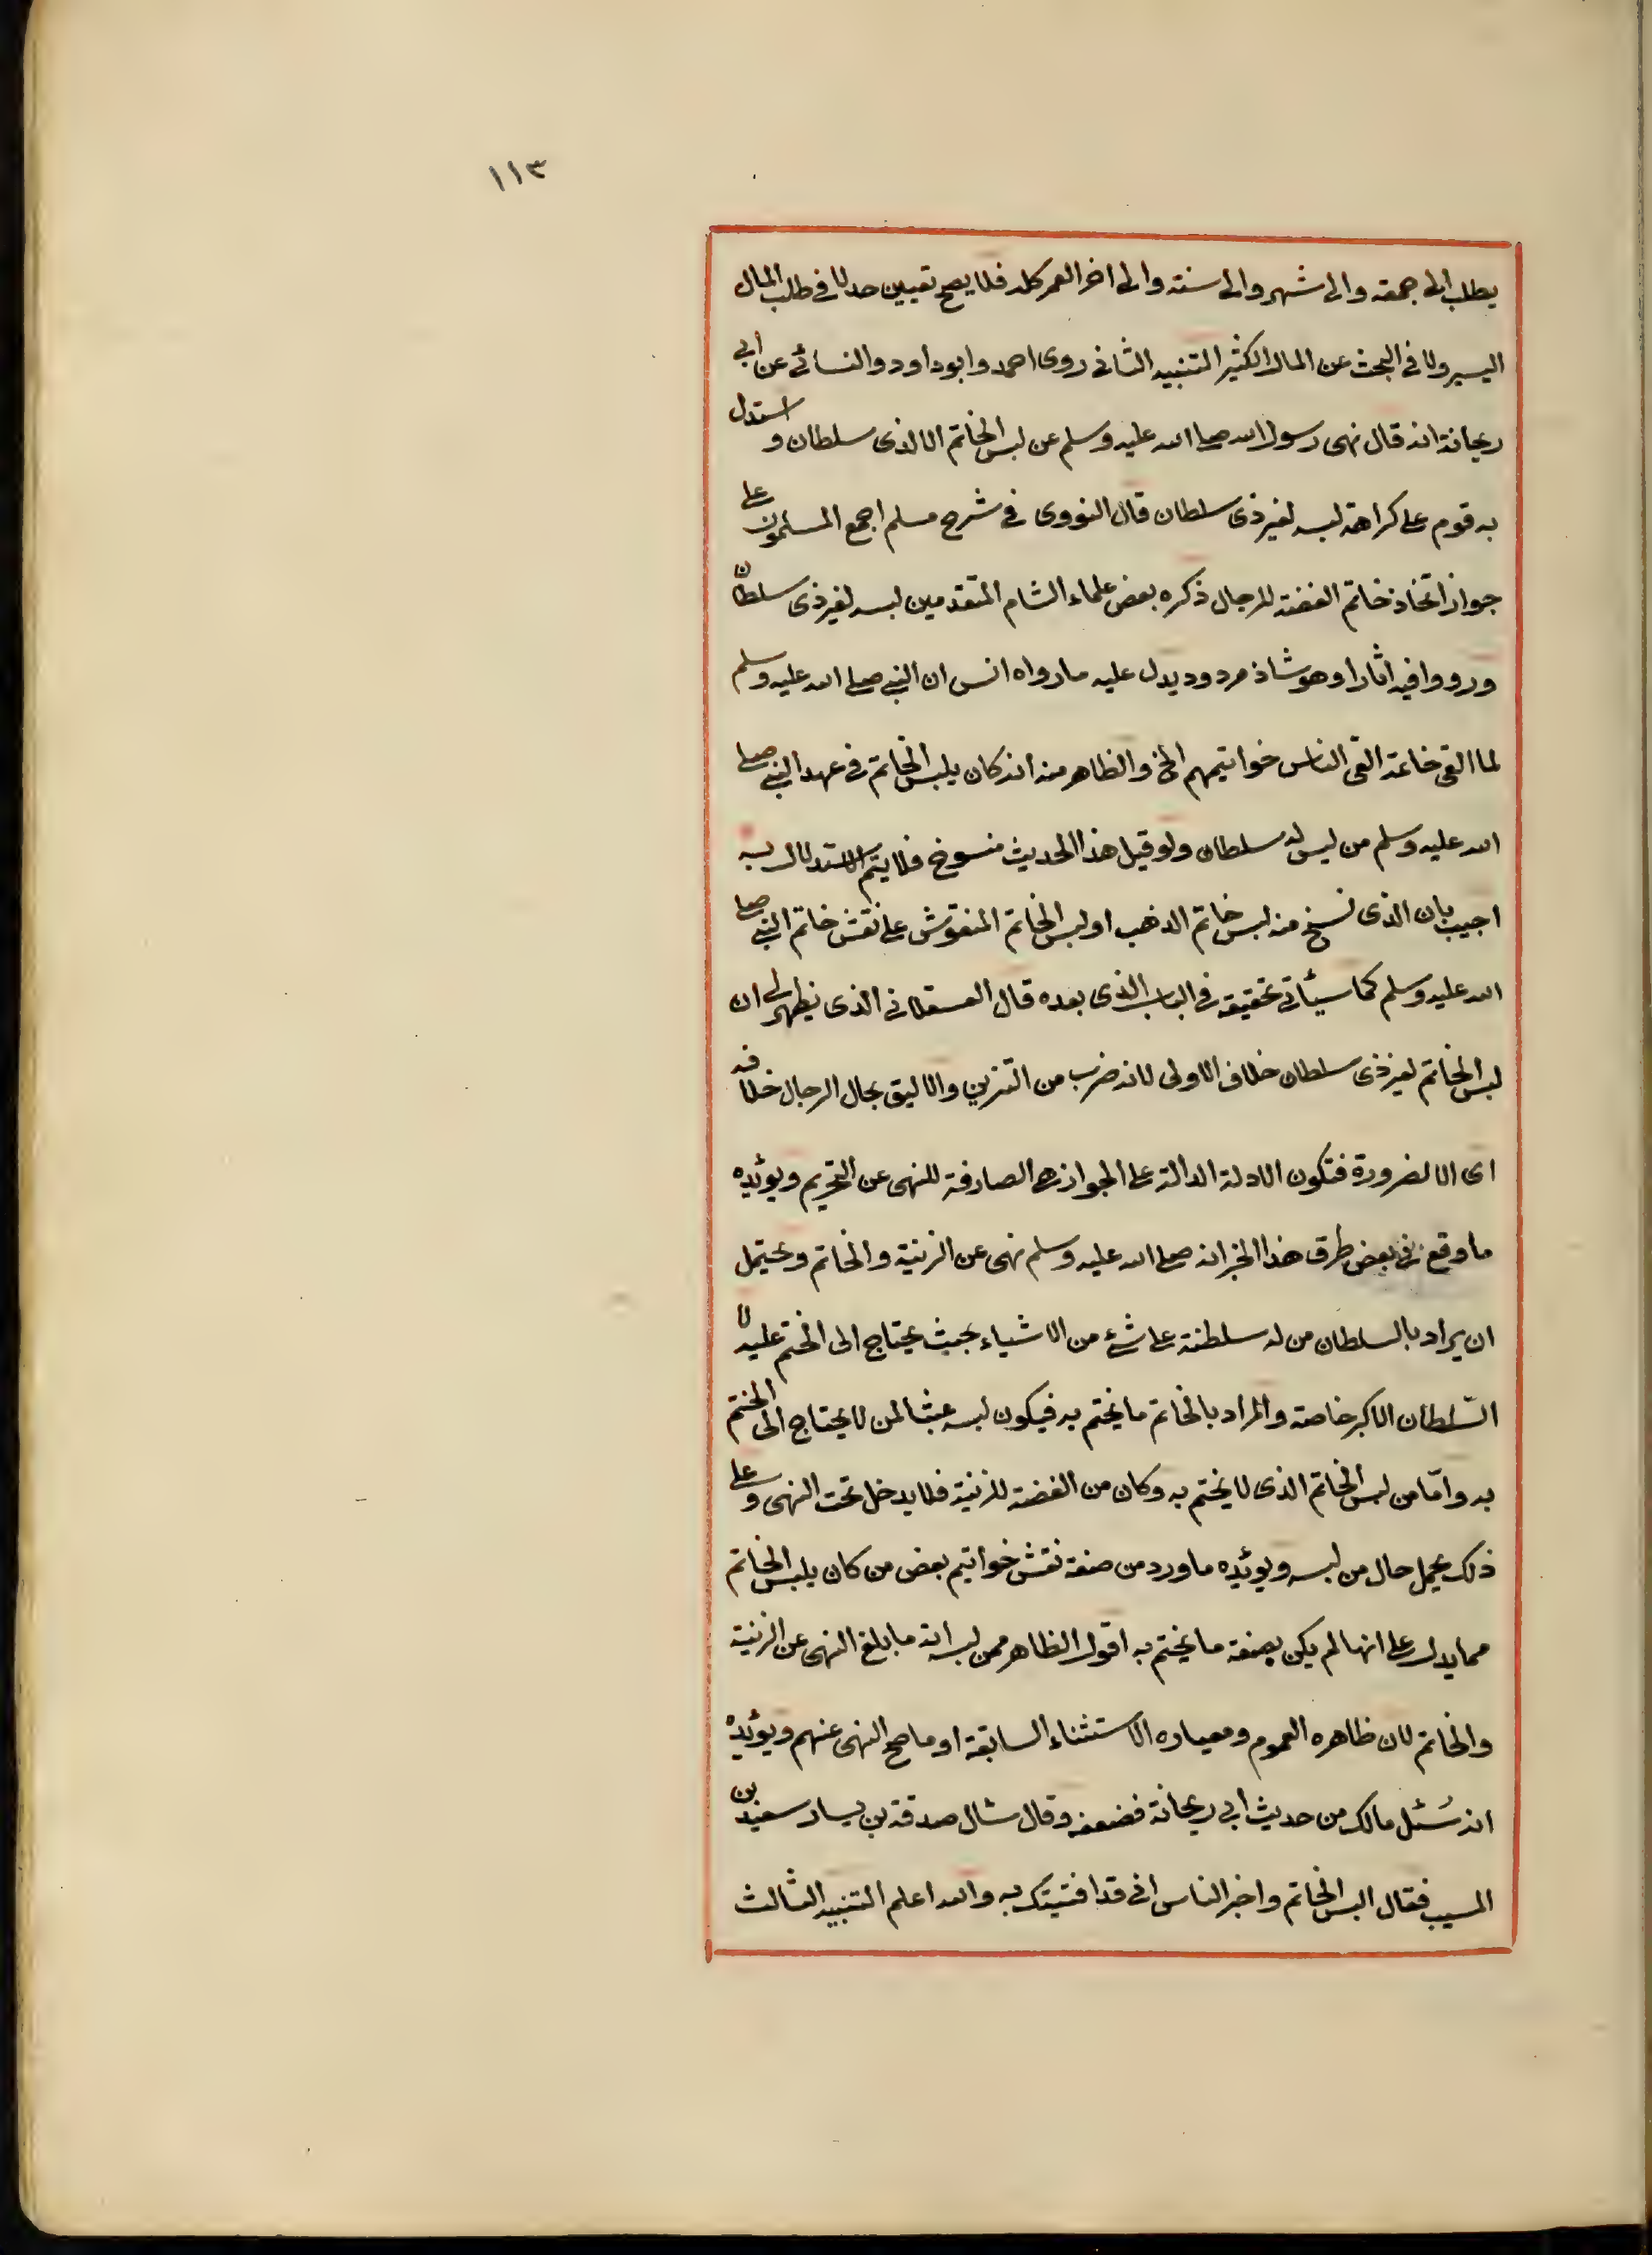 ١١٣
يطلب الى جمعة والى شهر والى سنة والى اخر العمر كله فلا يصح تعيين حد لا في طلب المال
اليسير ولا في البحث عن المال الكثير التنبيه الثانى روى احمد وابو داود والنسائى عن ابى
ريحانة انه قال نهى رسول الله صلى الله عليه وسلم عن لبس الخاتم الا لذى سلطان و استدل
به قوم على كراهة لبسه لغير ذى سلطان قال النووى فى شرح مسلم اجمع المسلمون على
جواز اتخاذ خاتم الفضة للرجال ذكره بعض علماء الشام المتقدمين لبسه لغير ذى سلطان
ورووا فيه اثارا وهو شاذ مردود يدل عليه ما رواه انس ان النبى صلى الله عليه وسلم
لما القى خاتمه القى الناس خواتيمهم الخ والظاهر منه انه كان يلبس الخاتم فى عهد النبى صلى
الله عليه وسلم من ليس له سلطان ولو قيل هذا الحديث منسوخ فلا يتم الاستدلال به
اجيب بان الذى نسخ منه لبس خاتم الذهب او لبس الخاتم المنقوش على نقش خاتم النبى صلى
الله عليه وسلم كما سيئاتى تحقيقه فى الباب الذى بعده قال العسقلانى الذى يظهر لى ان
لبس الخاتم لغير ذى سلطان خلاف الاولى لانه ضرب من التزين والاليق بحال الرجال خلافه
اى الا لضرورة فتكون الادلة الدالة على الجواز هى الصارفة للنهى عن التحريم ويؤيده
ما وقع فى بعض طرق هذا الخبر انه صلى الله عليه وسلم نهى عن الزينة والخاتم ويحتمل
ان يراد بالسلطان من له سلطنة على شئ من الاشياء بحيث يحتاج الى الختم عليه لا
السّلطان الاكبر خاصة والمراد بالخاتم ما يختم به فيكون لبسه عبثا لمن لا يحتاج الى الختم
به وامّا من لبس الخاتم الذى لا يختم به وكان من الفضة للزينة فلا يدخل تحت النهى وعلى
ذلك يحمل حال من لبسه ويؤيده ما ورد من صفة نقش خواتيم بعض من كان يلبس الخاتم
مما يدل على انها لم يكن بصفة ما يختم به اقول الظاهر ممن لبسه انه ما بلغ النهى عن الزينة
والخاتم لان ظاهره العموم ومعياره الاستثناء السابقة او ما صح النهى عنهم ويؤيده
انه سُئل مالك من حديث ابى ريحانة فضعفه وقال سئال صدقة بن يسار سعيد بن
المسيب فقال البس الخاتم واخبر الناس انى قد افتيتك به والله اعلم التنبيه الثالث